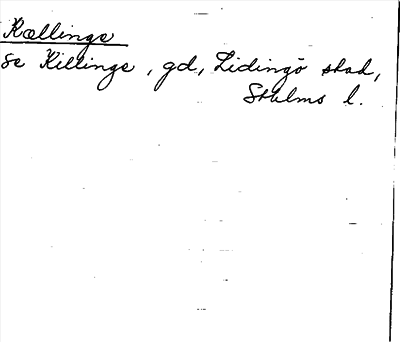 Kællinge
Se Killinge, gd, Lidingö stad,
Sthlms l.